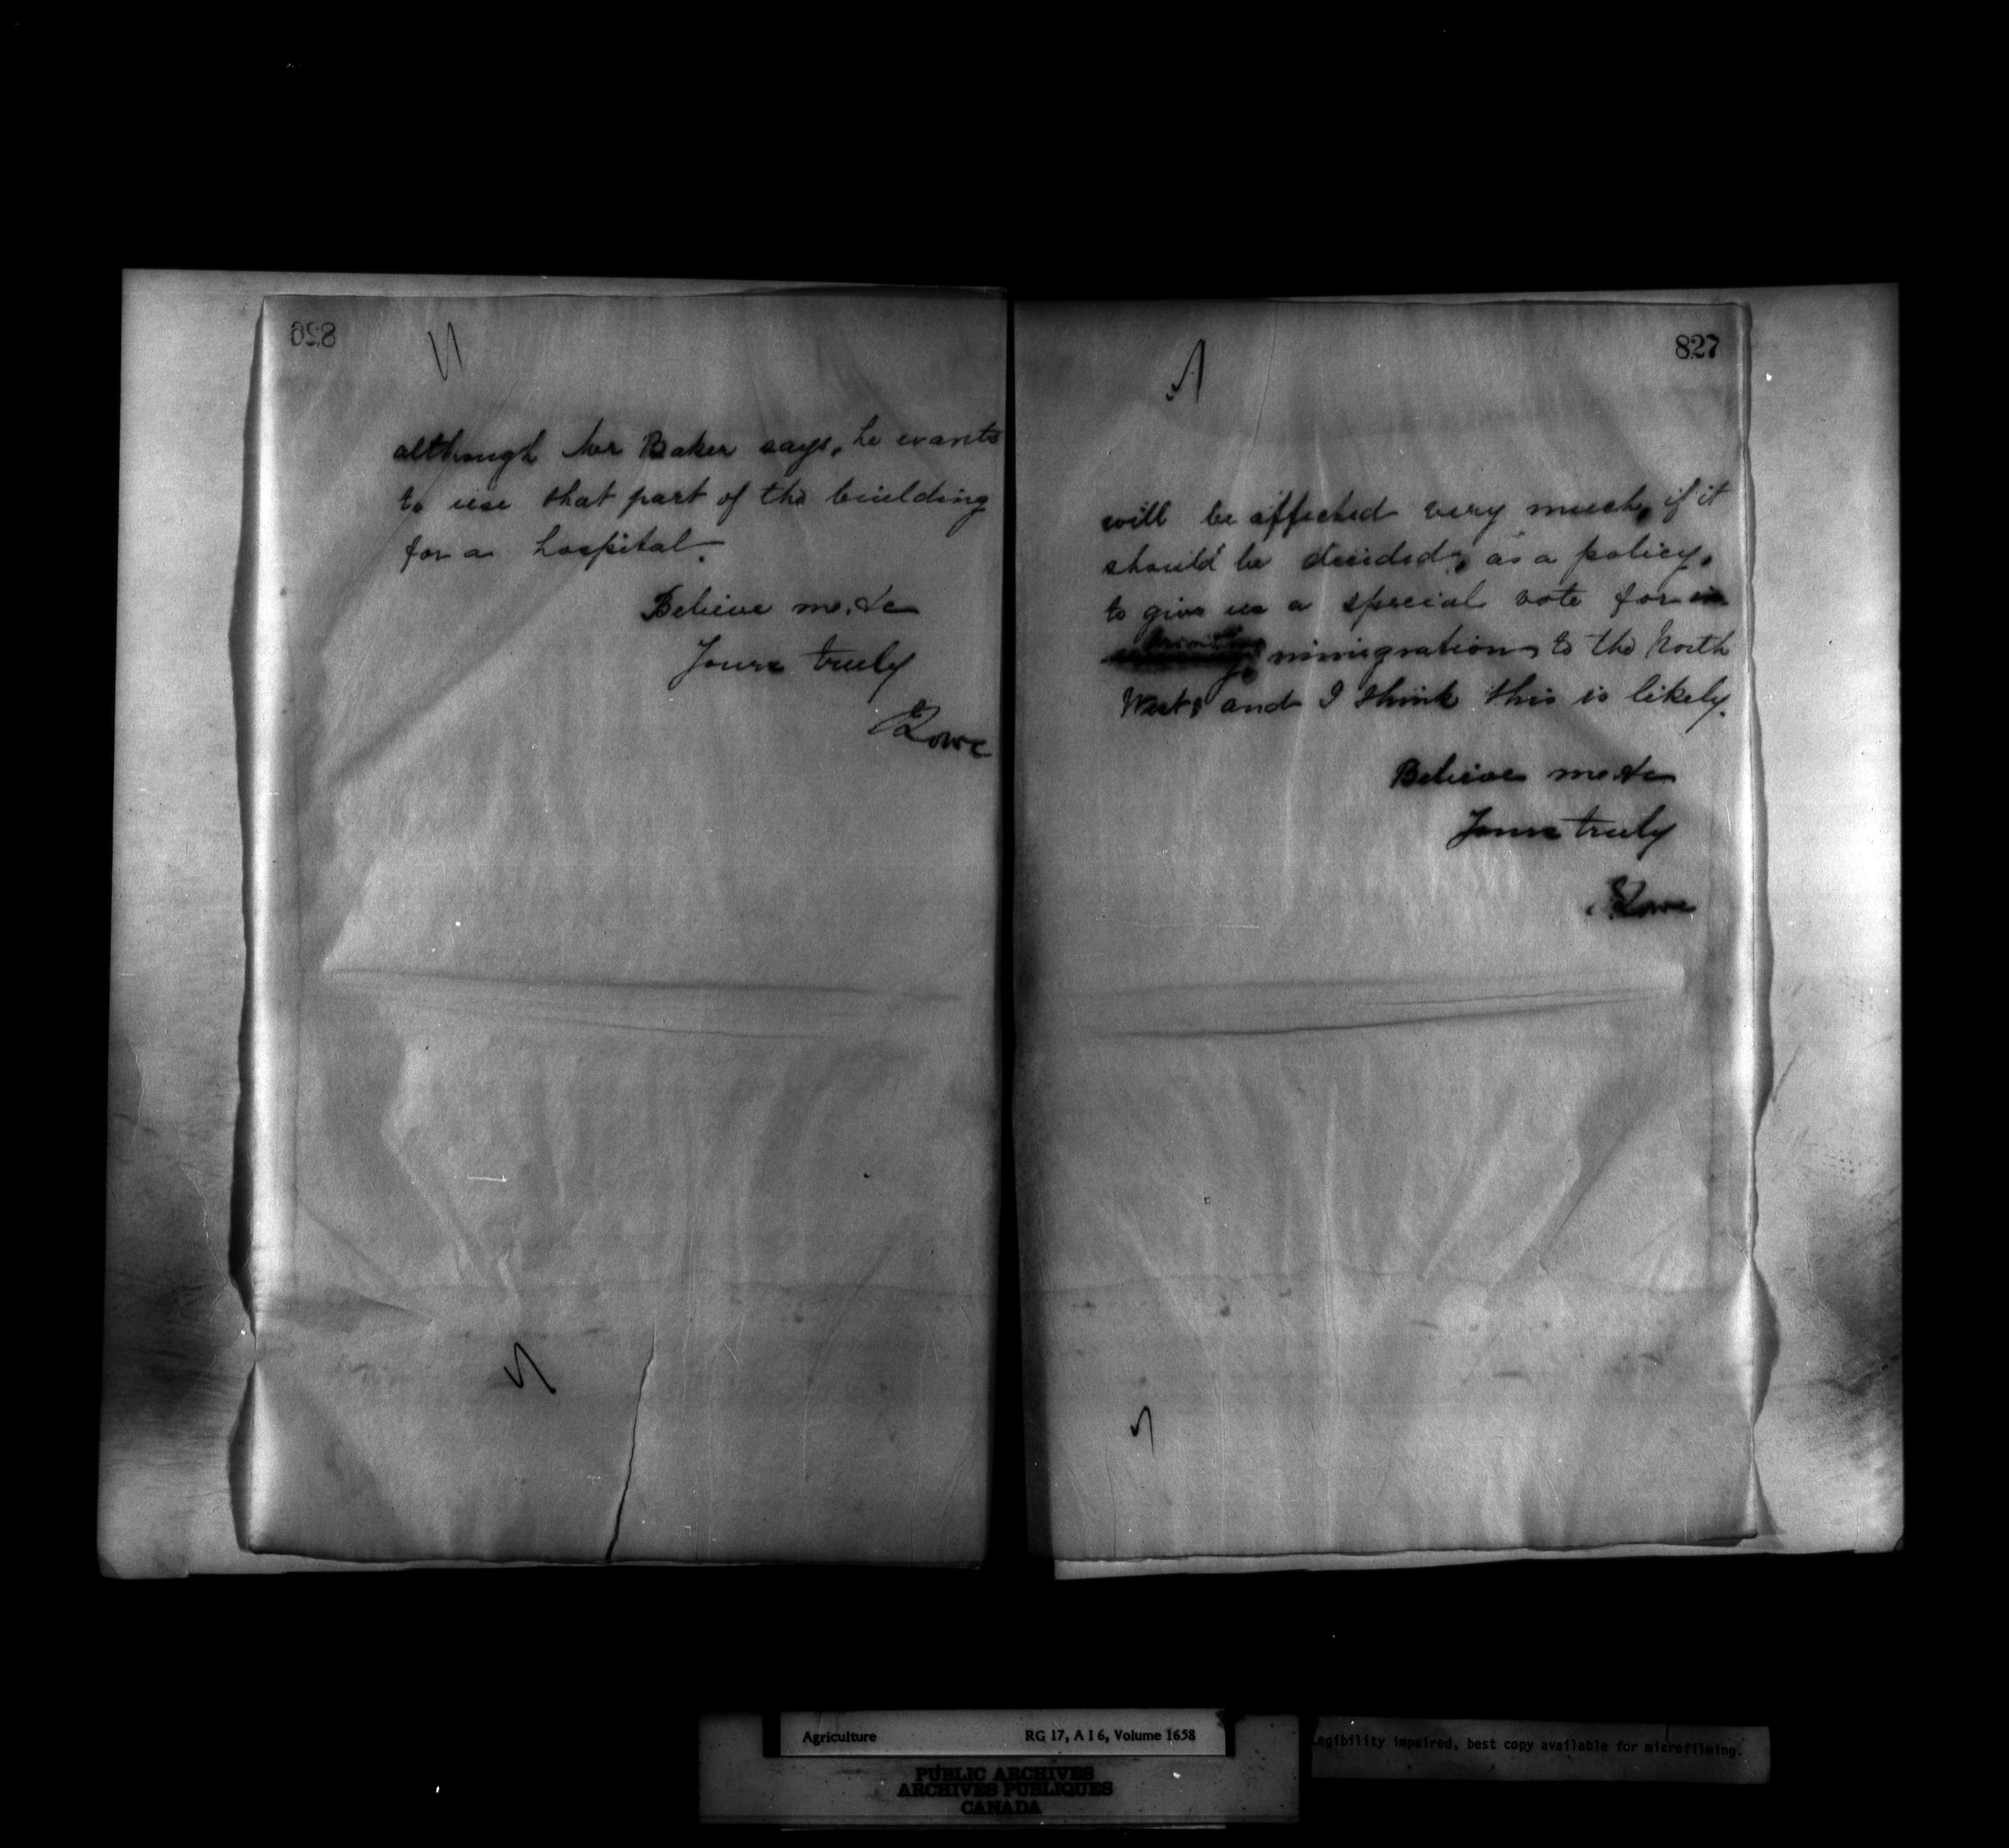 826
although Mr Baker says, he wants
to use that part of the building
for a hospital.
Believe me, &c
Yours truly
J Lowe
827
will be affected very much, if it
should be decided, as a policy,
to give us a special vote for
immigration, to the North
West, and I think this is likely.
Believe me &c
Yours truly
J Lowe
Agriculture RG 17, A I 6, Volume 1658
PUBLIC ARCHIVES
ARCHIVES PUBLIQUES
CANADA
egibility impaired, best copy available for microfilming.